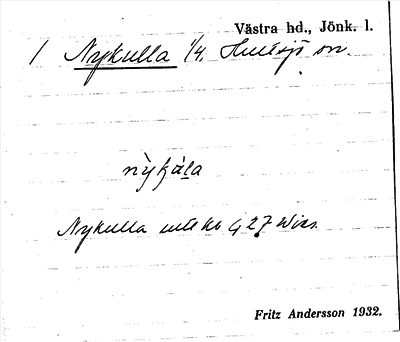 Västra hd., Jönk. l.
1 Nykulla 1/4. Hultsjö sn.
nỳkùla
Nykulla G 27 Wies.
Fritz Andersson 1932.